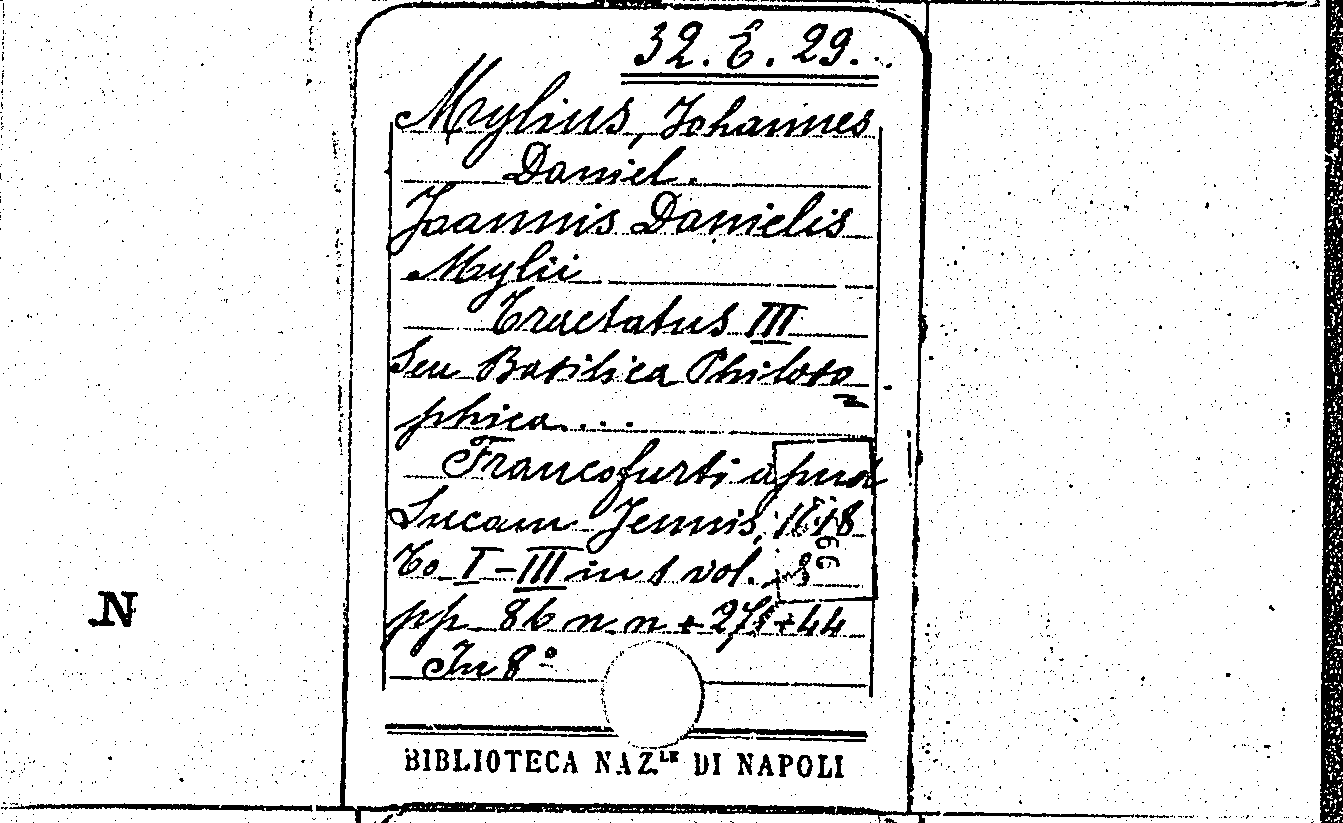 32. E. 29.
Mylius, Johannes
Daniel.
Joannis Danielis
Mylii
Tractatus III
Seu Basilica Philoso=
phica....
Francofurti apud
Lucam Jennis, 1618
To I-III in 1 vol.
pp 86 n. n + 275+44
In 8°
N
BIBLIOTECA NAZ.LE DI NAPOLI